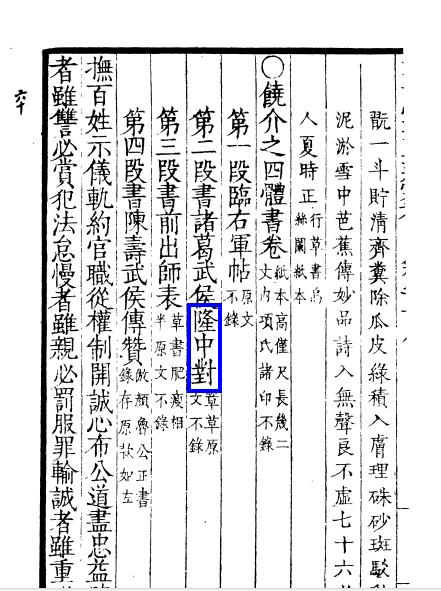 翫一斗貯清齊糞除瓜皮綠積入膚理硃砂斑駁
泥淤雪中芭蕉傳妙品詩入無聲良不虛七十六
人夏時正行草書烏絲闌紙本
〇饒介之四體書卷紙本高僅尺長幾二丈內項氏諸印不錄
第一段臨右軍帖原文不錄
第二段書諸葛武侯隆中對章草原文不錄
第三段書前出師表草書肥瘦相半原文不錄
第四段書陳壽武侯傳贊倣顏魯公正書錄存原款如左
撫百姓示儀軌約官職從權制開誠心布公道盡忠益時
者雖讐必賞犯法怠慢者雖親必罰服罪輸誠者雖重
六十